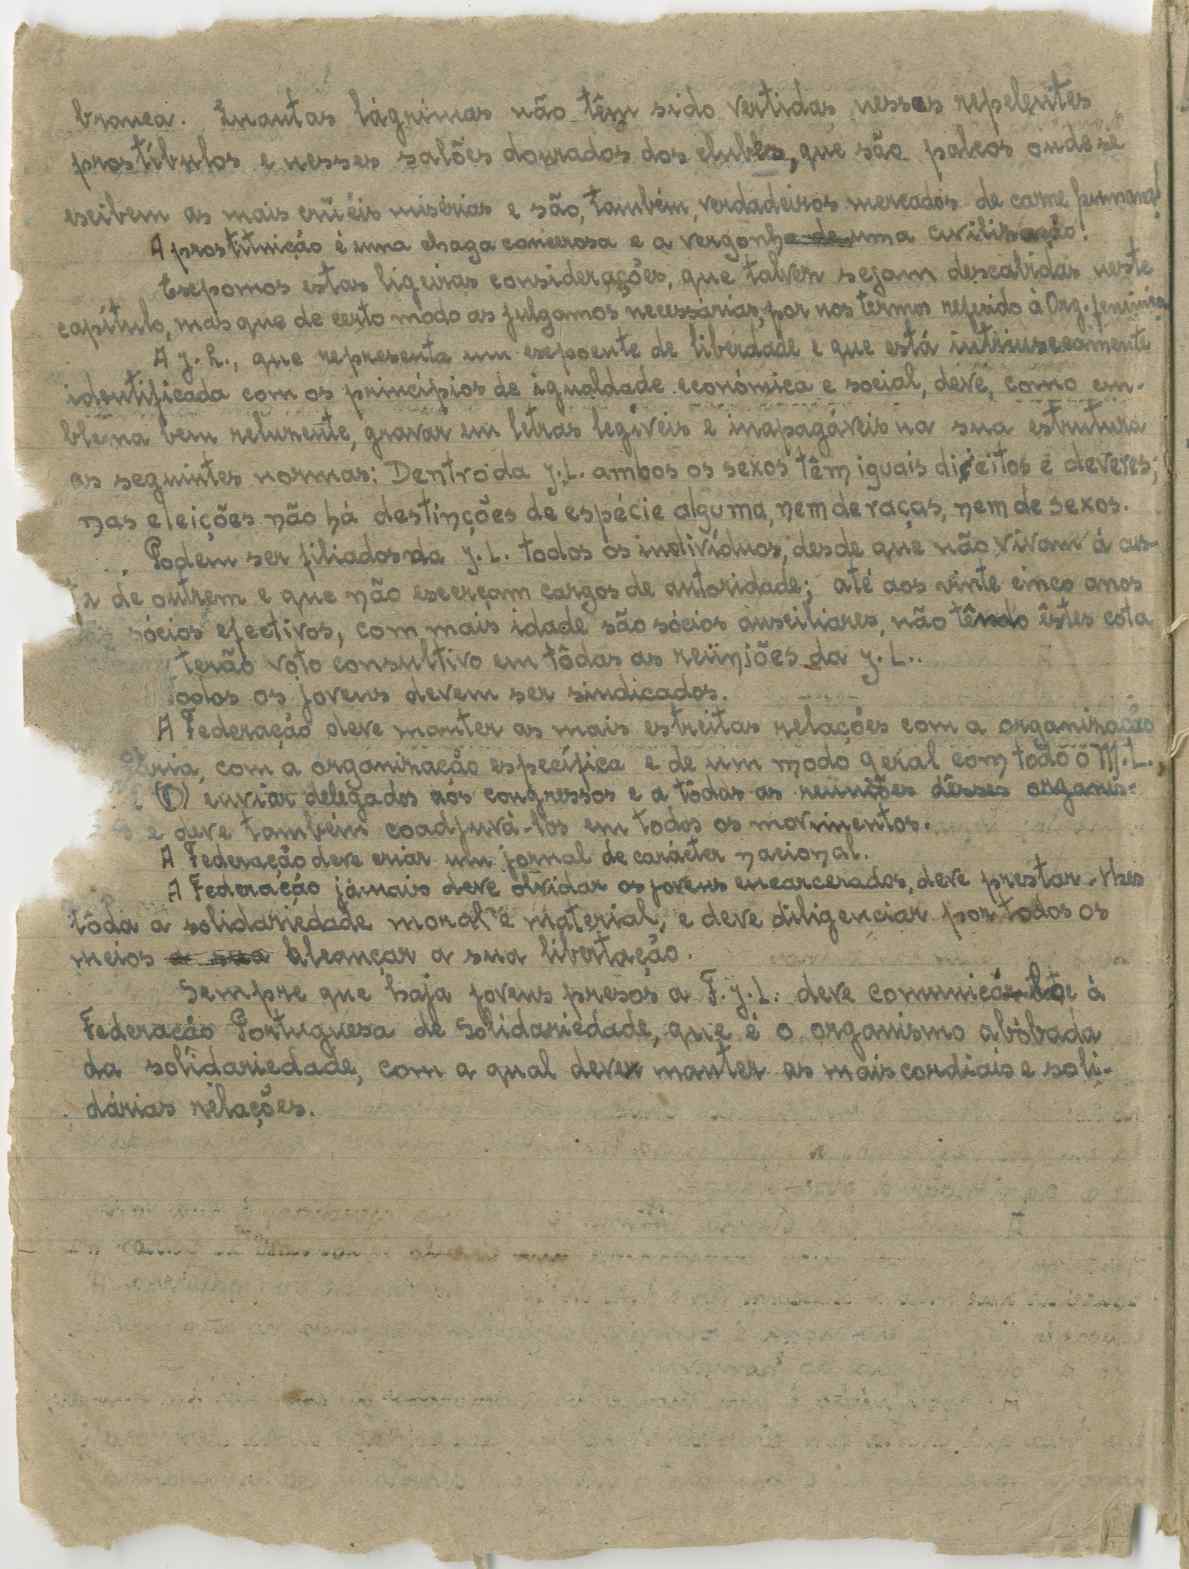 branca. Quantas lágrimas não têm sido vertidas nesses repelentes
prostíbulos e nesses salões dourados dos clubes, que são palcos onde se
escibem as mais cruéis misérias e são, também, verdadeiros mercados de carne humana!
A prostituição é uma chaga cancerosa e a vergonha de uma civilização!
Escpomos estas ligeiras considerações, que talvez sejam descabidas neste
capítulo, mas que de certo modo as julgamos necessárias, por nos termos referido à Org. feminina
A J. L., que representa um escpoente de liberdade e que está intrinsecamente
identificada com os princípios de igualdade económica e social, deve, como em-
blema bem relusente, gravar em letras legíveis e inapagáveis na sua estrutura
as seguintes normas: Dentro da J.L. ambos os sexos têm iguais direitos e deveres;
nas eleições não há destinções de espécie alguma, nem de raças, nem de sexos.
Podem ser filiados da J. L. todos os indivíduos, desde que não vivam á cus-
ta de outrem e que não escerçam cargos de autoridade; até aos vinte cinco anos
sócios efectivos, com mais idade são sócios ausciliares, não tendo êstes cota
terão voto consultivo em tôdas as reüniões da J. L..
Todos os jovens devem ser sindicados.
A Federação deve manter as mais estreitas relações com a organização
ária, com a organização específica e de um modo geral com todo o M.L.,
enviar delegados aos congressos e a tôdas as reüniões dêsses organis-
e deve também coadjuvá-los em todos os movimentos.
A Federação deve criar um jornal de carácter nacional.
A Federação jámais deve olvidar os jovens encarcerados, deve prestar-lhes
tôda a solidariedade moral e material, e deve diligenciar por todos os
meios a sua alcançar a sua libertação.
Sempre que haja jovens presos a F.J.L. deve comunicá-lo á
Federação Portuguesa de Solidariedade, que é o organismo abóbada
da solidariedade, com a qual dever manter as mais cordiais e soli-
dárias relações.